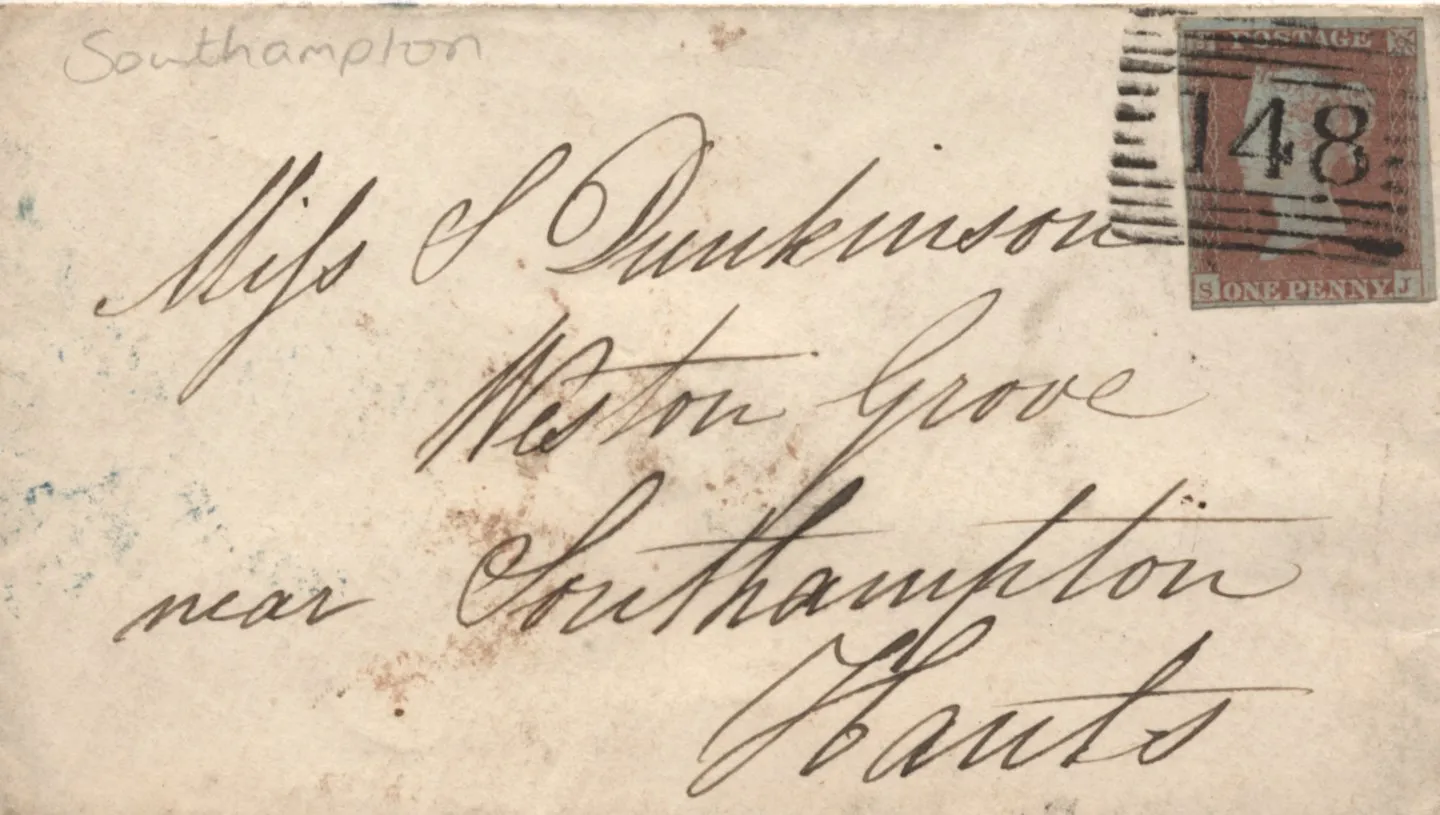 Southampton
POSTAGE
148
S ONE PENNY. J
Miss S Dunkinson
Weston Grove
near Southampton
Hants